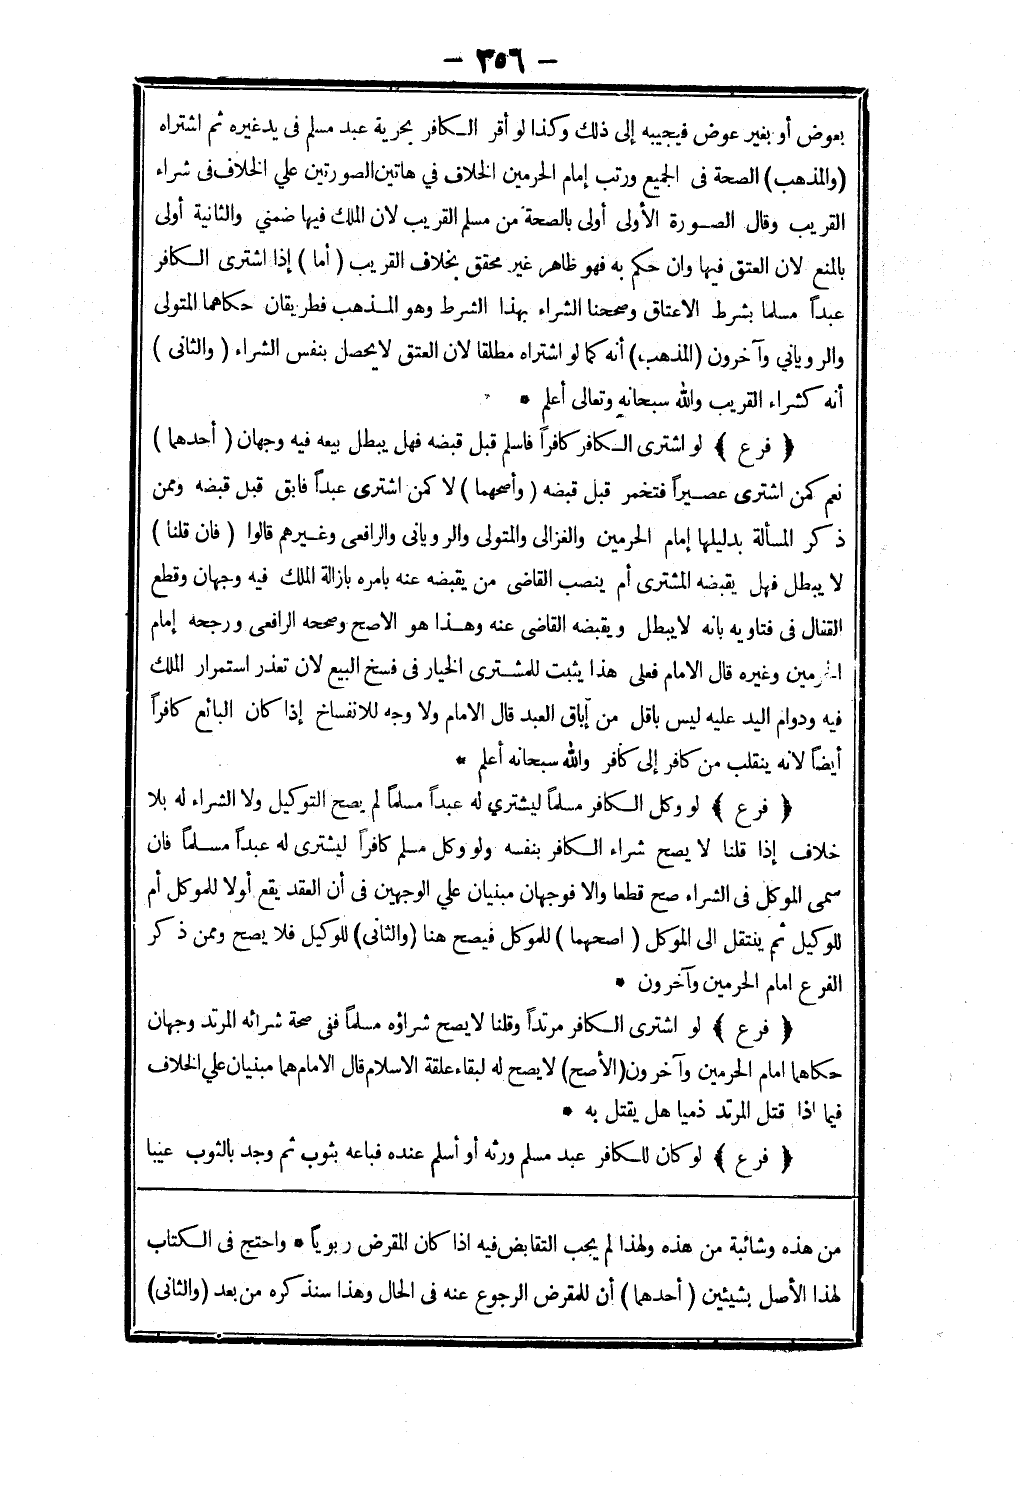 — ٣٥٦ —
بعوض أو بغير عوض فيجيبه إلى ذلك وكذا لو أقر الكافر بحرية عبد مسلم فى يد غيره ثم اشتراه
(والمذهب) الصحة فى الجميع ورتب إمام الحرمين الخلاف في هاتين الصورتين علي الخلاف فى شراء
القريب وقال الصورة الأولى أولى بالصحة من مسلم القريب لان الملك فيها ضمني والثانية أولى
بالمنع لان العتق فيها وان حكم به فهو ظاهر غير محقق بخلاف القريب (أما) إذا اشترى الكافر
عبداً مسلما بشرط الاعتاق وصححنا الشراء بهذا الشرط وهو المذهب فطريقان حكاهما المتولى
والروياني وآخرون (المذهب) أنه كما لو اشتراه مطلقا لان العتق لا يحصل بنفس الشراء (والثانى)
أنه كشراء القريب والله سبحانه وتعالى أعلم *
﴿ فرع ﴾ لو اشترى الكافر كافراً فاسلم قبل قبضه فهل يبطل بيعه فيه وجهان (أحدهما)
نعم كمن اشترى عصيراً فتخمر قبل قبضه (وأصحهما) لا كمن اشترى عبداً فابق قبل قبضه وممن
ذكر المسألة بدليلها إمام الحرمين والغزالى والمتولى والرويانى والرافعى وغيرهم قالوا (فان قلنا)
لا يبطل فهل يقبضه المشترى أم ينصب القاضى من يقبضه عنه بامره بازالة الملك فيه وجهان وقطع
القفال فى فتاويه بانه لا يبطل ويقبضه القاضى عنه وهذا هو الاصح وصححه الرافعى ورجحه إمام
الحرمين وغيره قال الامام فعلى هذا يثبت للمشترى الخيار فى فسخ البيع لان تعذر استمرار الملك
فيه ودوام اليد عليه ليس باقل من إباق العبد قال الامام ولا وجه للانفساخ إذا كان البائع كافراً
أيضاً لانه ينقلب من كافر إلى كافر والله سبحانه أعلم *
﴿ فرع ﴾ لو وكل الكافر مسلماً ليشتري له عبداً مسلماً لم يصح التوكيل ولا الشراء له بلا
خلاف إذا قلنا لا يصح شراء الكافر بنفسه ولو وكل مسلم كافراً ليشترى له عبداً مسلماً فان
سمى الموكل فى الشراء صح قطعا والا فوجهان مبنيان علي الوجهين فى أن العقد يقع أولا للموكل أم
للوكيل ثم ينتقل الى الموكل (اصحهما) للموكل فيصح هنا (والثانى) للوكيل فلا يصح وممن ذكر
الفرع امام الحرمين وآخرون *
﴿ فرع ﴾ لو اشترى الكافر مرتداً وقلنا لا يصح شراؤه مسلماً ففى صحة شرائه المرتد وجهان
حكاهما امام الحرمين وآخرون (الأصح) لا يصح له لبقاء علقة الاسلام قال الامام هما مبنيان علي الخلاف
فيما اذا قتل المرتد ذميا هل يقتل به *
﴿ فرع ﴾ لو كان للكافر عبد مسلم ورثه أو أسلم عنده فباعه بثوب ثم وجد بالثوب عيبا
من هذه وشائبة من هذه ولهذا لم يجب التقابض فيه اذا كان المقرض ربوياً * واحتج فى الكتاب
لهذا الأصل بشيئين (أحدهما) أن للمقرض الرجوع عنه فى الحال وهذا سنذكره من بعد (والثانى)